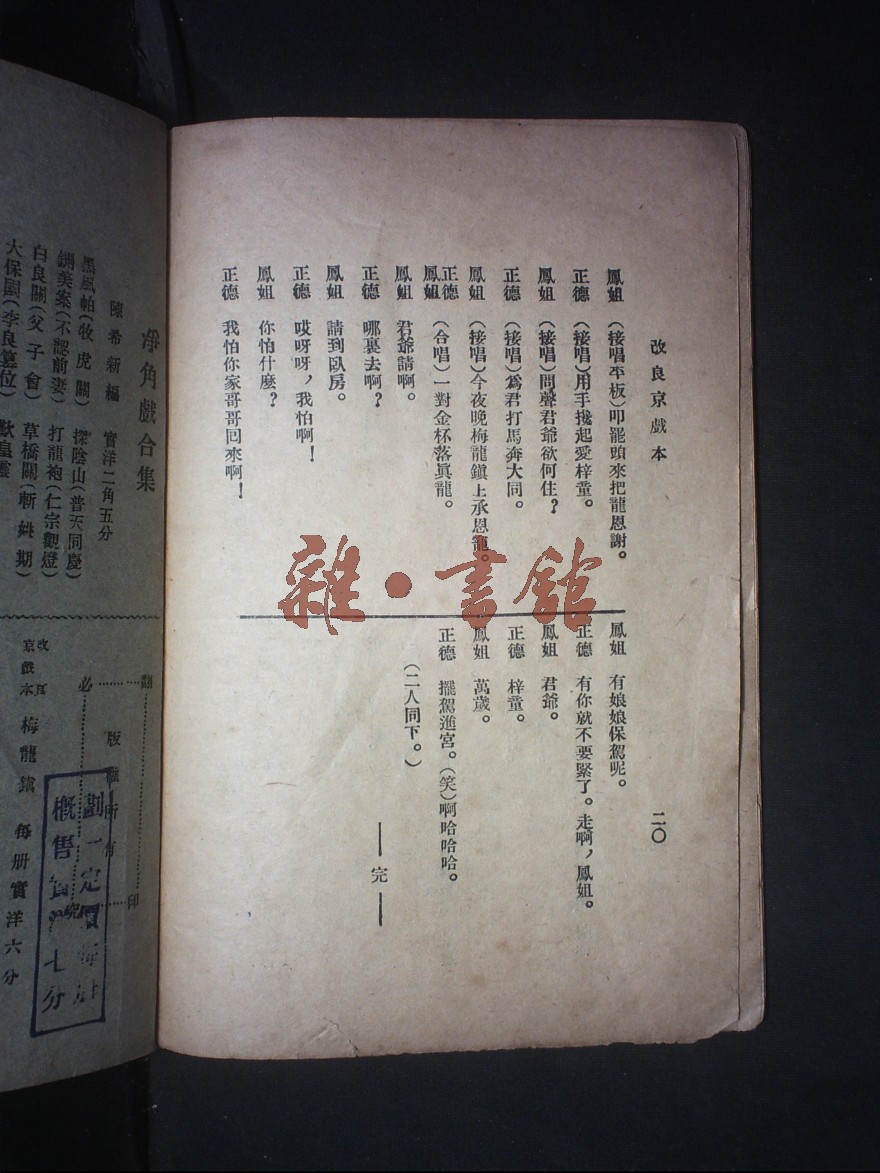 改良京戲本
二〇
鳳姐 (接唱平板)叩罷頭來把龍恩謝。
正德 (接唱)用手攙起愛梓童。
鳳姐 (接唱)問聲君爺欲何住?
正德 (接唱)爲君打馬奔大同。
鳳姐 (接唱)今夜晚梅龍鎮上承恩寵。
正德
鳳姐 (合唱)一對金杯落眞龍。
鳳姐 君爺請啊。
正德 哪裏去啊?
鳳姐 請到臥房。
正德 哎呀呀,我怕啊!
鳳姐 你怕什麼?
正德 我怕你家哥哥回來啊!
鳳姐 有娘娘保駕呢。
正德 有你就不要緊了。走啊,鳳姐。
鳳姐 君爺。
正德 梓童。
鳳姐 萬歲。
正德 擺駕進宮。(笑)啊哈哈哈。
(二人同下。)
完
雜·書館
淨角戲合集
陳希新編 實洋二角五分
黑風帕(牧虎關) 探陰山(普天同慶)
鍘美案(不認前妻) 打龍袍(仁宗觀燈)
白良關(父子會) 草橋關(斬姚期)
大保國(李良篡位)
翻印
版權所有
必究
改良
京戲本 梅龍鎮 每册實洋六分
劃一定價每册
概售實洋七分